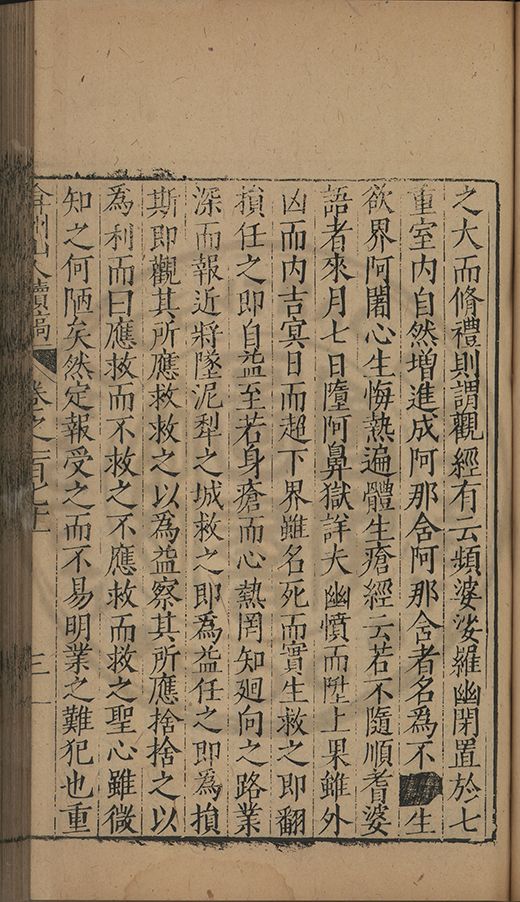 之大而脩禮則謂觀經有云頻婆娑羅幽閉置於七
重室内自然增進成阿那含阿那含者名為不生
欲界阿闍心生悔熱遍體生瘡經云若不隨順耆婆
語者來月七日墮阿鼻獄詳夫幽憤而陞上果雖外
凶而内吉冥日而超下界雖名死而實生救之即翻
損任之即自益至若身瘡而心熱罔知廻向之路業
深而報近將墜泥犁之城救之即為益任之即為損
斯即觀其所應救救之以為益察其所應捨捨之以
為利而曰應救而不救之不應救而救之聖心雖微
知之何陋矣然定報受之而不易明業之難犯也重
弇州山人續稿
卷之一百
三